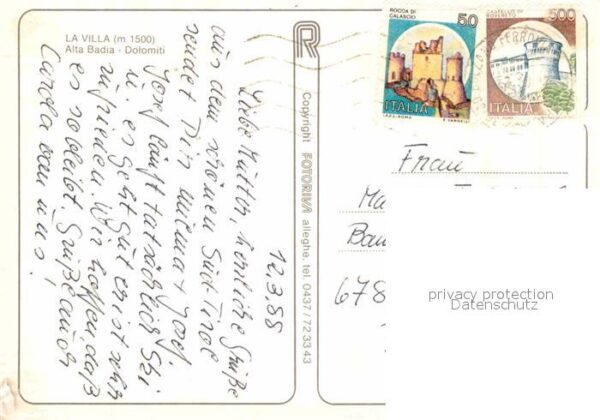 LA VILLA (m 1500)
Alta Badia - Dolomiti
12.3.88
Liebe Mutter, herzliche Grüße
aus dem schönen Süd Tirol
sendet Dir + Josef.
Josef läuft tatsächlich Ski
u. es geht gut er ist sehr
zufrieden. Wir hoffen, daß
es so bleibt. Grüße auch
Carola von uns!
R
Copyright FOTORIVA alleghe, tel. 0437/723343
ROCCA DI
CALASCIO
50
ITALIA
CASTELLO DI
ROVERETO
500
ITALIA
Frau
Ma
Bau
678
privacy protection
Datenschutz